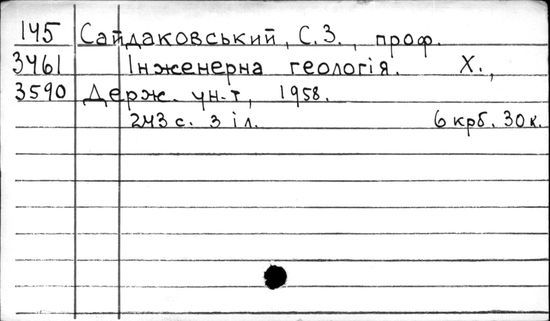 145 Сайдаковський, С.З., проф.
3461 Інженерна геологія. Х.,
3590 Держ. ун-т, 1958.
243 с. з іл. 6 крб. 30 к.